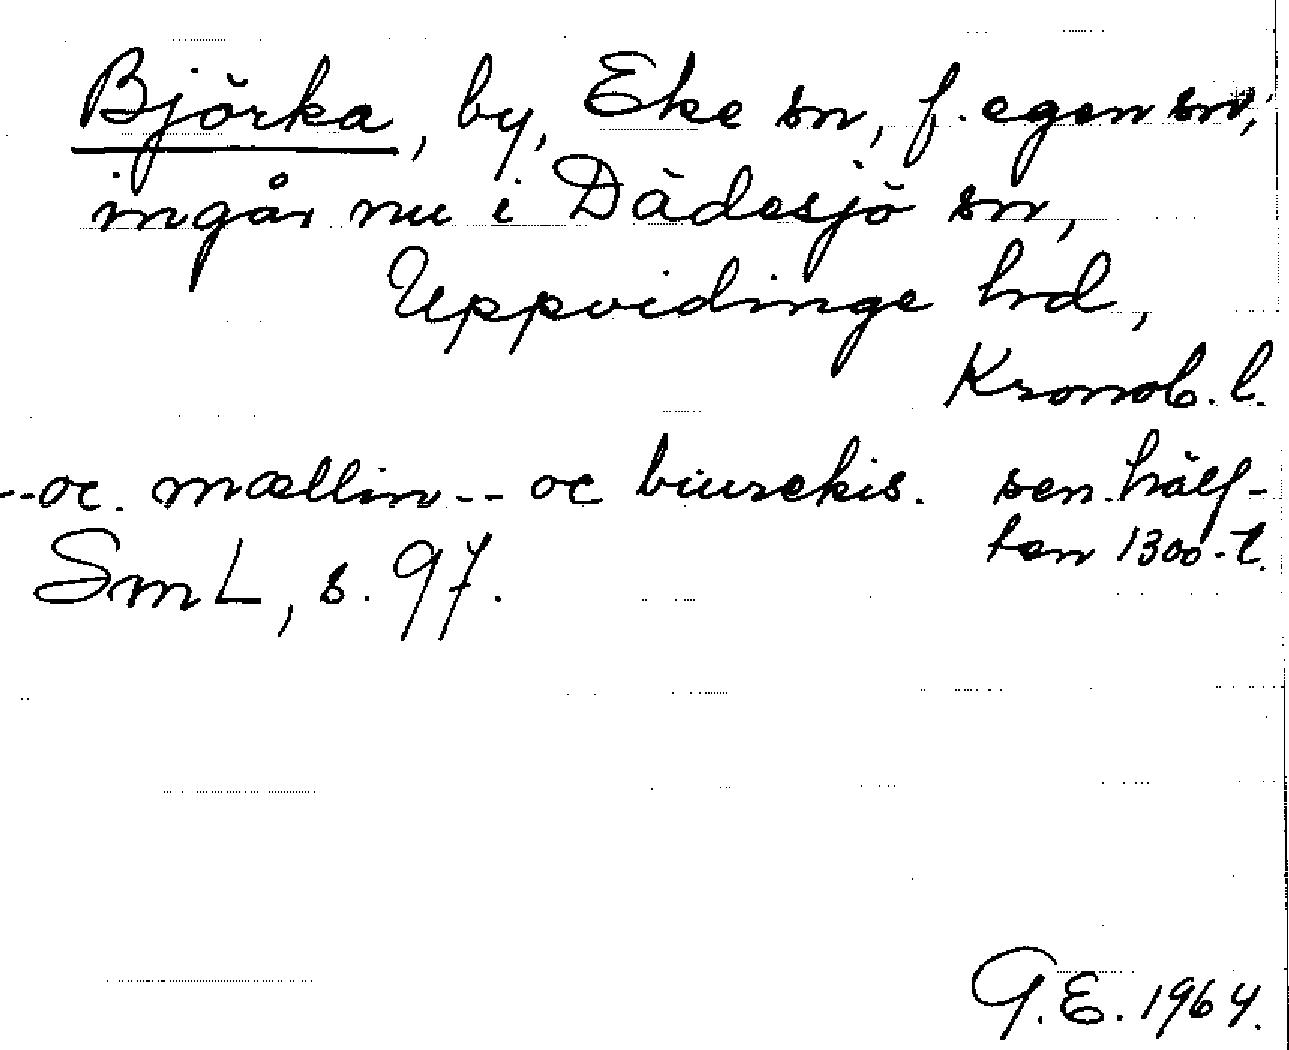 Björka, by, Eke sn, f. egen sn;
ingår nu i Dädesjö sn,
Uppvidinge hrd,
Kronob. l.
--oc. mællin-- oc biurekis. sen. hälf-
ten 1300-t.
SmL, s. 97.
G.E. 1964.